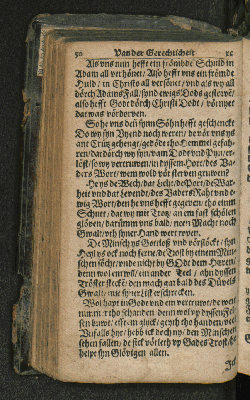 50 Van der Gerechticheit ꝛc.
Als vns nun hefft ein frömbde Schuld in
Adam all verhönet / Also hefft vns ein frömde
Huld / in Christo all versönet / vnd als wy all
dörch Adams Fall / synd ewigs Dods gestorvē /
also hefft Godt dörch Christi Dodt / vörnyet
dat was vördorven.
So he vns den synn Söhn hefft geschencket
Do wy syn Vyend noch weren / de vör vns ys
ant Crütz gehenget / gedödet tho Hemmel gefah-
ren / dardörch wy syn van Dodt vnd Pyn er-
löst / so wy vertruwen / in dyssem Hort / des Va-
ders Wort / wem wold vör sterven gruwen?
Heys de Wech / dat Licht / de Port / de War-
heit vnd dat Levendt / des Vaders Radt vnd e-
wig Wort / den he vns hefft gegeven / tho einem
Schutt / dat wy mit Trotz / an em fast schölen
glöven / darümm vns bald / neen Macht noch
Gwalt / vth syner Hand wert roven.
De Minsch ys Gotloß vnd vörflöckt / syn
Heyl ys ock noch ferne / de Trost by einem Min-
schen söcht / vnde nicht by GOde dem Heren /
denn wol em wil / ein ander Teel / ahn dyssen
Tröster stecken / den mach gar bald des Düvels
Gwalt / mit syner List erschrecken.
Wol hapt in Gode vnd em vertruwt / de wert
nümmer tho schanden / denn wol vp dyssen Fel-
sen buwt / efft em glyck geyt tho handen / veel
Vnfalls hyr / hebb ick doch ny / den Minschen
sehen fallen / de sick vörlett vp Gades Trost / he
helpt syn Glövigen allen.